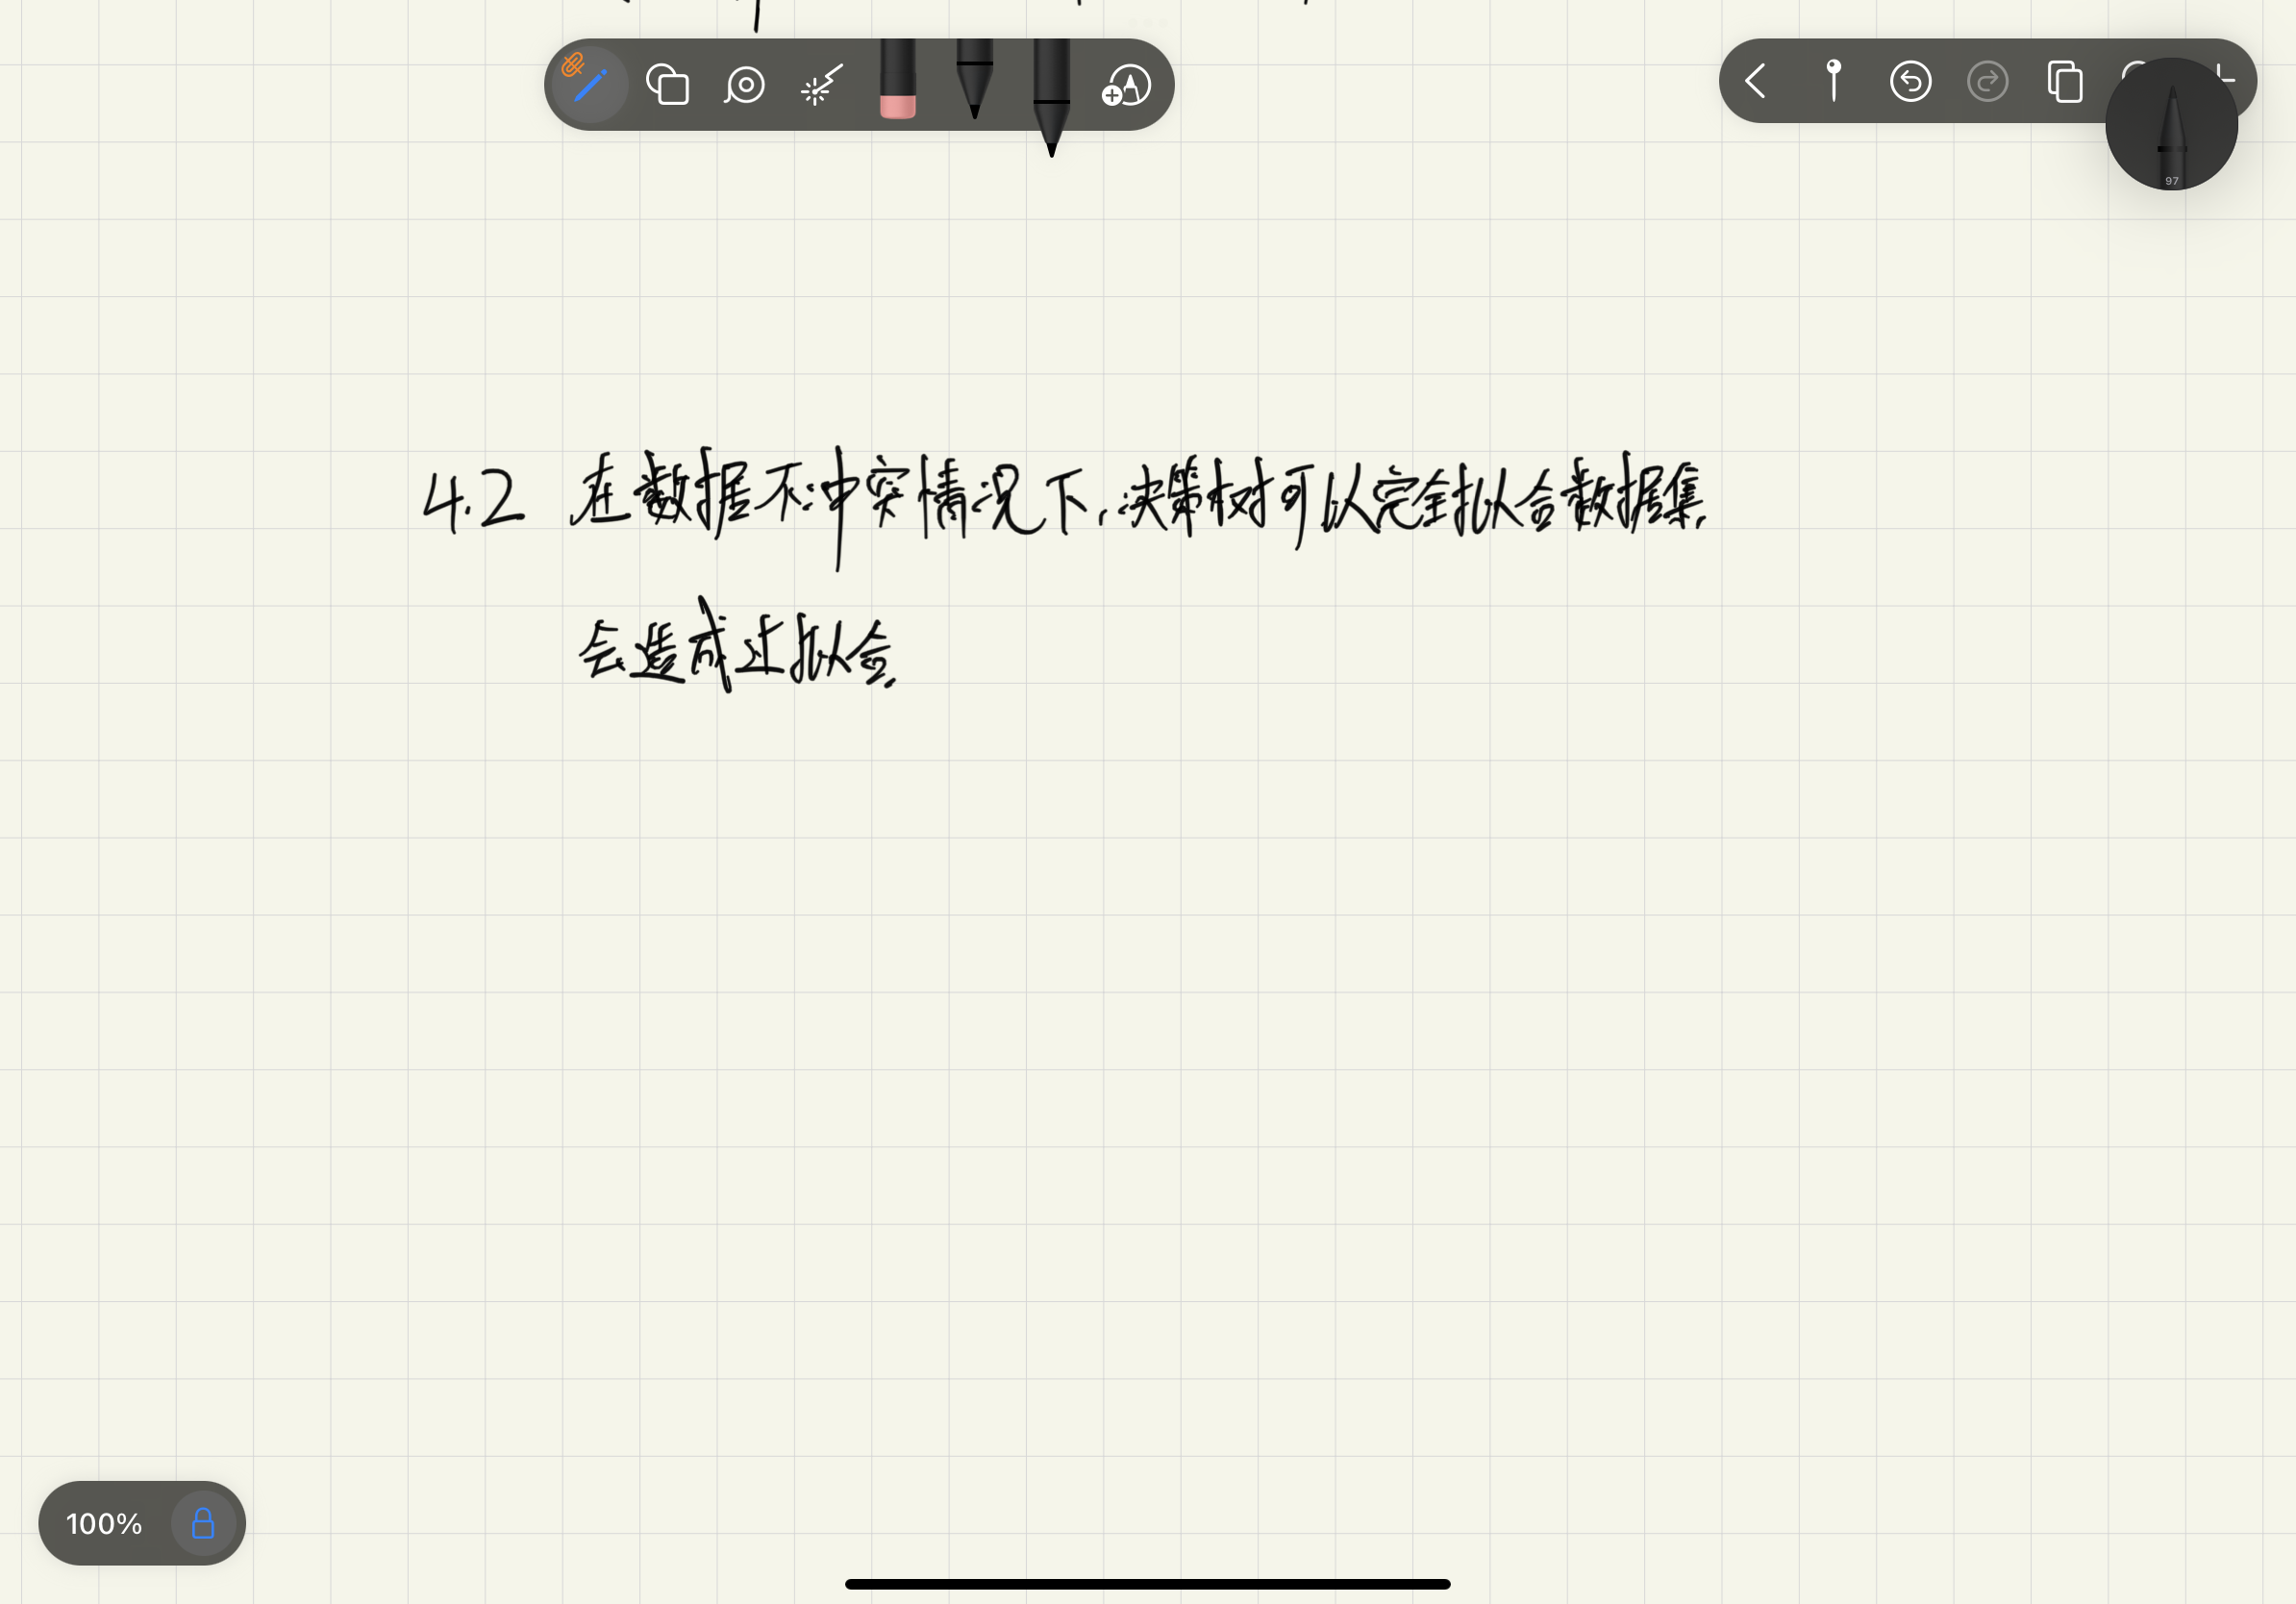 4.2 在数据不冲突情况下,决策树可以完全拟合数据集,
会造成过拟合.
100%
97